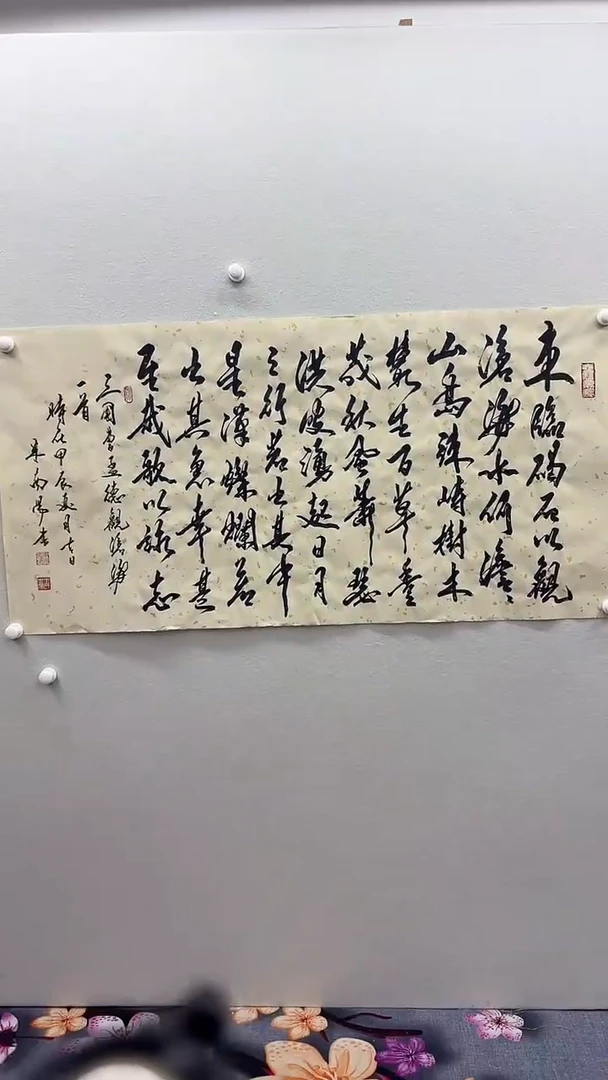 東臨碣石以觀
滄海水何澹〻
山島竦峙樹木
叢生百草豐
茂秋風蕭瑟
洪波湧起日月
之行若出其中
星漢燦爛若
出其裏幸甚
至哉歌以詠志
三國曹孟德觀滄海
一首
時在甲辰夏月七日
書